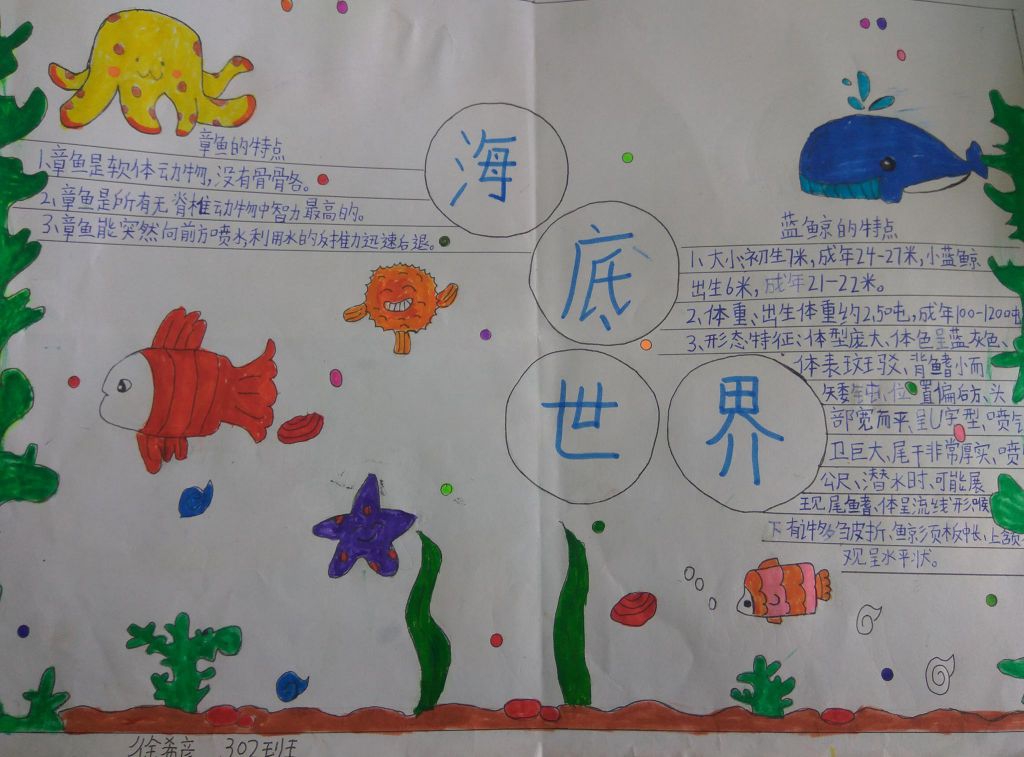 海底世界
章鱼的特点
1、章鱼是软体动物，没有骨骨各。
2、章鱼是所有无脊椎动物中智力最高的。
3、章鱼能突然向前方喷水，利用水的反推力迅速后退。
蓝鲸的特点
1、大小：初生7米，成年24-27米，小蓝鲸
出生6米，成年21-22米。
2、体重：出生体重约2.50吨，成年100-120吨
3、形态特征：体型庞大、体色呈蓝灰色、
体表斑驳、背鳍小而
位置偏后方、头
部宽而平、呈U字型、喷气
巨大、尾干非常厚实、喷
公尺、潜水时、可能展
现尾鳍、体呈流线形喉
下有许多皱皮折、鲸须板中长、上颌
观呈水平状。
徐希彦 302班